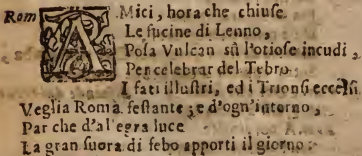 Rom AMici, hora che chiuse
Le fucine di Lenno,
Posa Vulcan sù l'otiose incudi,
Per celebrar del Tebro
I fati illustri, ed i Trionfi eccelsi
Veglia Roma festante; e d'ogn'intorno,
Par che d'alegra luce
La gran suora di febo apporti il giorno: